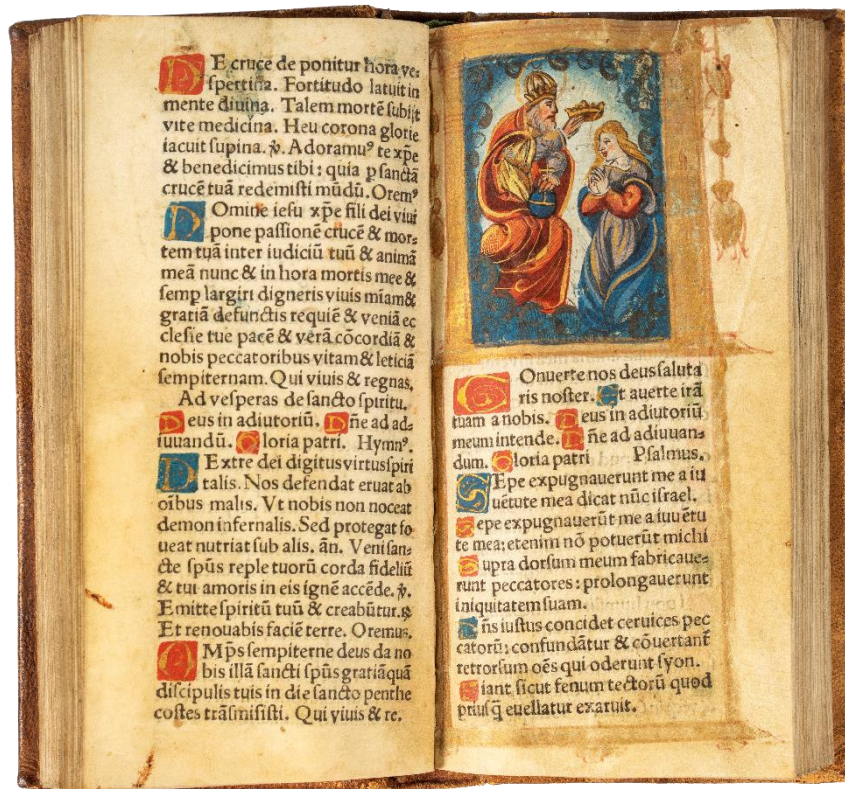 DE cruce de ponitur hora ve⸗
spertina. Fortitudo latuit in
mente diuina. Talem mortē subijt
vite medicina. Heu corona glorie
iacuit supina. ꝟ. Adoramuꝰ te xp̄e
& benedicimus tibi: quia p sanctā
crucē tuā redemisti mūdū. Oremꝰ
DOmine iesu xp̄e fili dei viui
pone passionē crucē & mor⸗
tem tuā inter iudiciū tuū & animā
meā nunc & in hora mortis mee &
semp largiri digneris viuis miam &
gratiā defunctis requiē & veniā ec
clesie tue pacē & verā cōcordiā &
nobis peccatoribus vitam & leticiā
sempiternam. Qui viuis & regnas.
Ad vesperas de sancto spiritu.
Deus in adiutoriū. Dn̄e ad ad⸗
iuuandū. Gloria patri. Hymnꝰ.
DExtre dei digitus virtus spiri
talis. Nos defendat eruat ab
oībus malis. Vt nobis non noceat
demon infernalis. Sed protegat fo
ueat nutriat sub alis. an̄. Veni san⸗
cte spūs reple tuorū corda fideliū
& tui amoris in eis ignē accēde. ꝟ.
Emitte spiritū tuū & creabūtur. ꝶ
Et renouabis faciē terre. Oremus.
OMp̄s sempiterne deus da no
bis illā sancti spūs gratiā quā
discipulis tuis in die sancto penthe
costes trāsmisisti. Qui viuis & re.
COnuerte nos deus saluta
ris noster. Et auerte irā
tuam a nobis. Deus in adiutoriū
meum intende. Dn̄e ad adiuuan⸗
dum. Gloria patri Psalmus.
SEpe expugnauerunt me a iu
uētute mea dicat nūc israel.
Sepe expugnauerūt me a iuuētu
te mea: etenim nō potuerūt michi
Supra dorsum meum fabricaue⸗
runt peccatores: prolongauerunt
iniquitatem suam.
Dn̄s iustus concidet ceruices pec
catorū: confundātur & cōuertant̄
retrorsum oēs qui oderunt syon.
Fiant sicut fenum tectorū quod
priusq̄ euellatur exaruit.